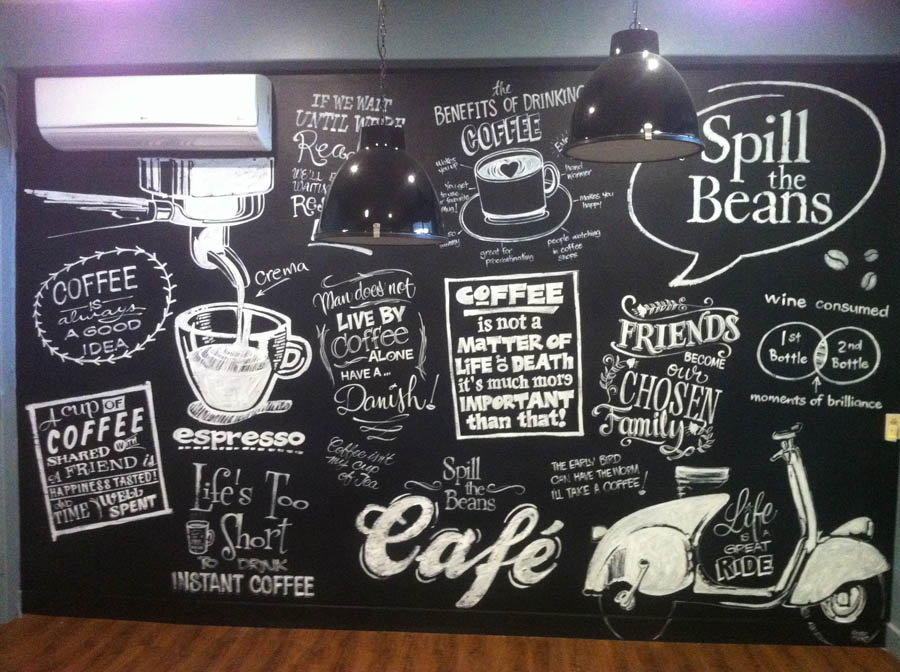 IF WE WAIT
UNTIL WE'RE
WE'LL B
the
BENEFITS OF DRINKING
COFFEE
Wakes
you up!
You get
to use
favorite
mug!
so
yummy
great for
procrastinating
people watching
in coffee
shops
Makes you
happy
Hand
warmer
Spill
the
Beans
COFFEE
IS
always
A GOOD
IDEA
Crema
espresso
Man does not
LIVE BY
Coffee
ALONE
HAVE A...
Danish!
COFFEE
is not a
MATTER OF
LIFE OR DEATH
it's much more
IMPORTANT
than that!
FRIENDS
BECOME
our
CHOSEN
Family
wine consumed
1st
Bottle
2nd
Bottle
moments of brilliance
A CUP OF
COFFEE
SHARED WITH
A FRIEND IS
HAPPINESS TASTED!
& TIME WELL
SPENT
Coffee isn't
my cup
of Tea
Life's Too
Short
TO DRINK
INSTANT COFFEE
Spill
the
Beans
Café
THE EARLY BIRD
CAN HAVE THE WORM,
I'LL TAKE A COFFEE!
Life
IS A
GREAT
RIDE